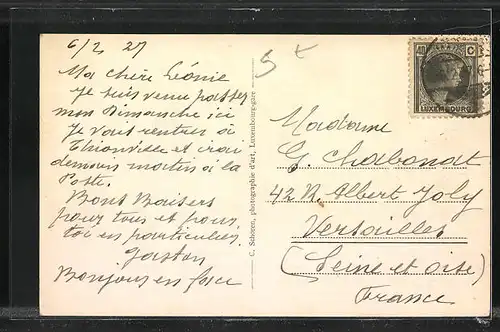 6/2 27
5 t
Ma chère Léonie
Je suis venu passer
mon Dimanche ici
Je vais rentrer à
Thionville et irai
demain matin à la
Poste.
Bons Baisers
pour tous et pour
toi en particulier
Gaston
Bonjour en face
C. Schroen, photographie d'art, Luxembourg-gare
40 C
LUXEMBOURG
Madame
G. Chabonat
42 R. Albert Joly
Versailles
(Seine et Oise)
France